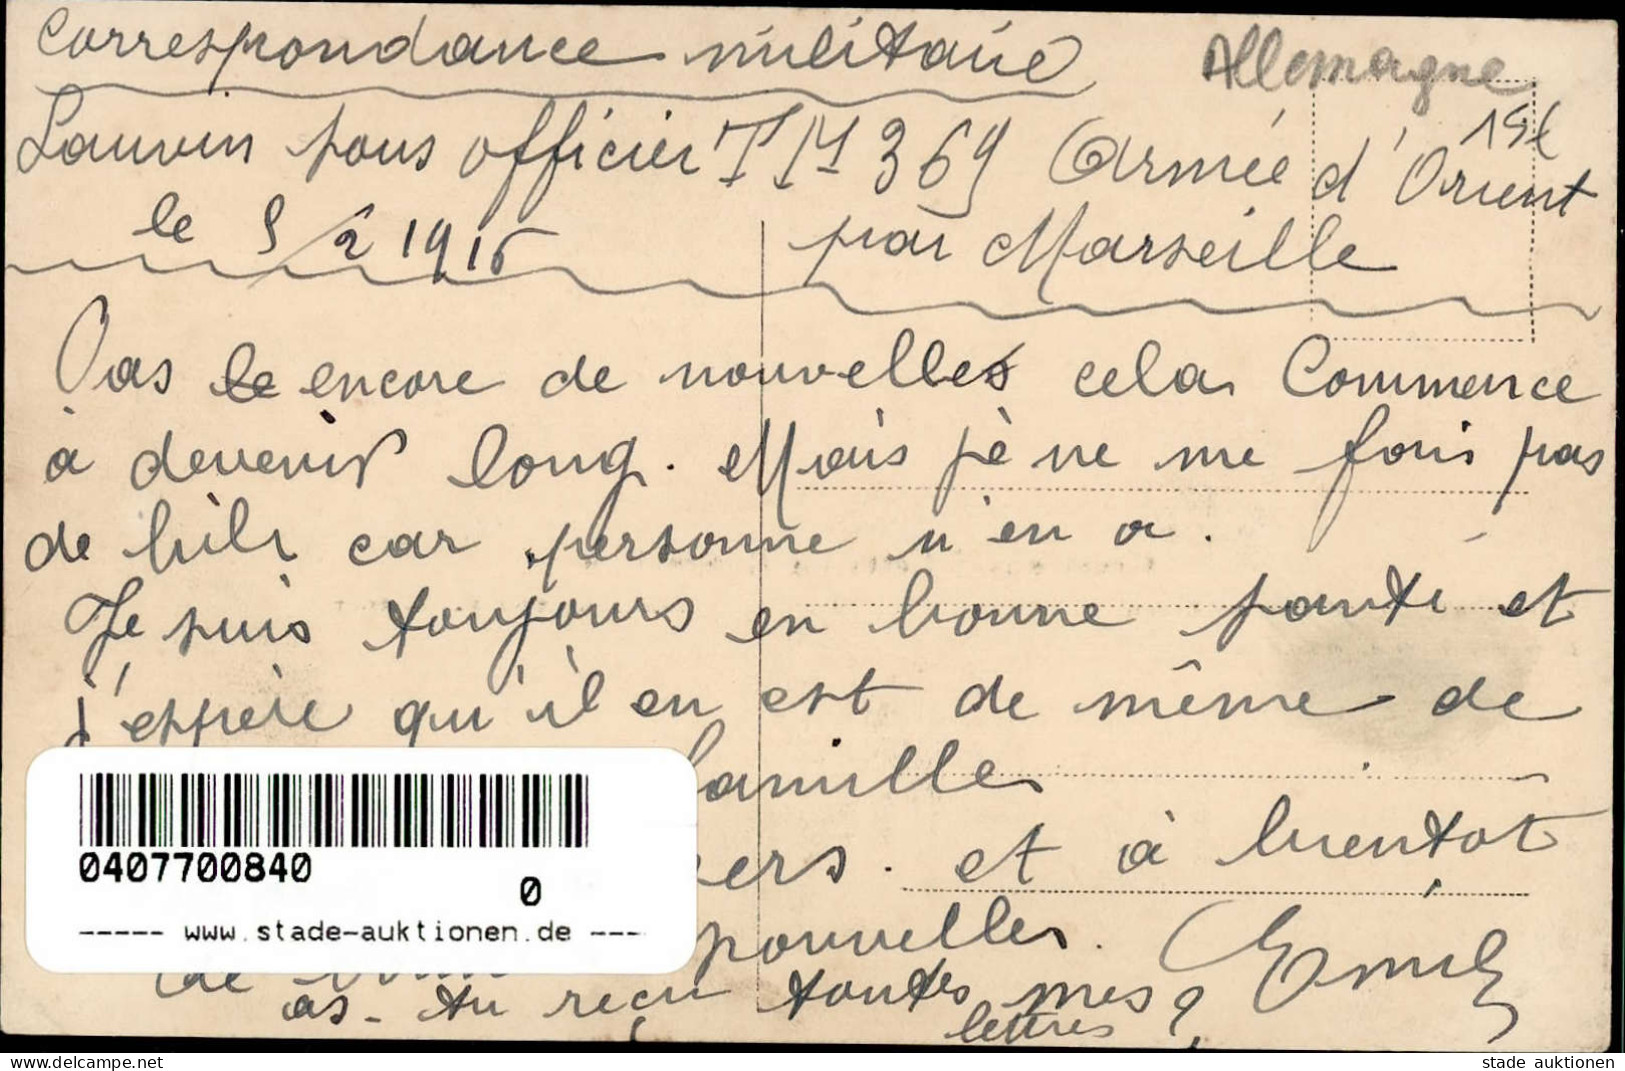 Correspondance militaire
Allemagne
Lauvin sous officier TM 369 Armée d'Orient
15f
le 5/2 1916 par Marseille
Pas le encore de nouvelles cela Commence
à devenir long. Mais je ne me fais pas
de bile car personne n'en a.
Je suis toujours en bonne santé et
j'espère qu'il en est de même de
famille
ers. et à bientôt
de nouvelles. Emile
as-tu reçu toutes mes
lettres ?
0407700840
0
----- www.stade-auktionen.de ---
stade auktionen